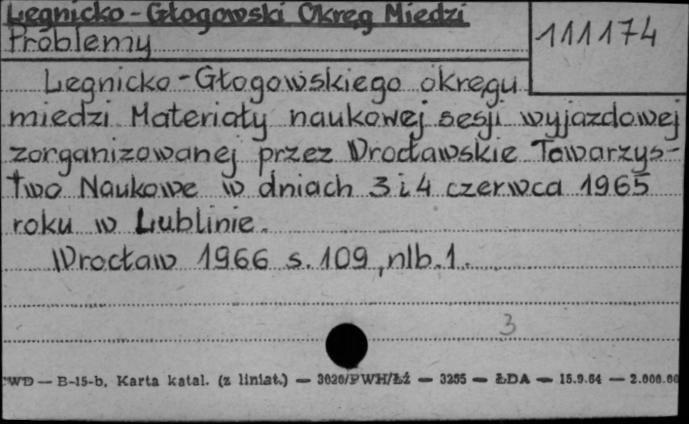 Legnicko-Głogowski Okręg Miedzi
Problemy
111174
Legnicko-Głogowskiego okręgu
miedzi Materiały naukowej sesji wyjazdowej
zorganizowanej przez Wrocławskie Towarzys-
two Naukowe w dniach 3 i 4 czerwca 1965
roku w Lublinie.
Wrocław 1966 s. 109, nlb. 1.
3
PWD — B-15-b, Karta katal. (z liniat.) — 3020/PWH/Łź — 3255 — ŁDA — 15.9.64 — 2.000.00